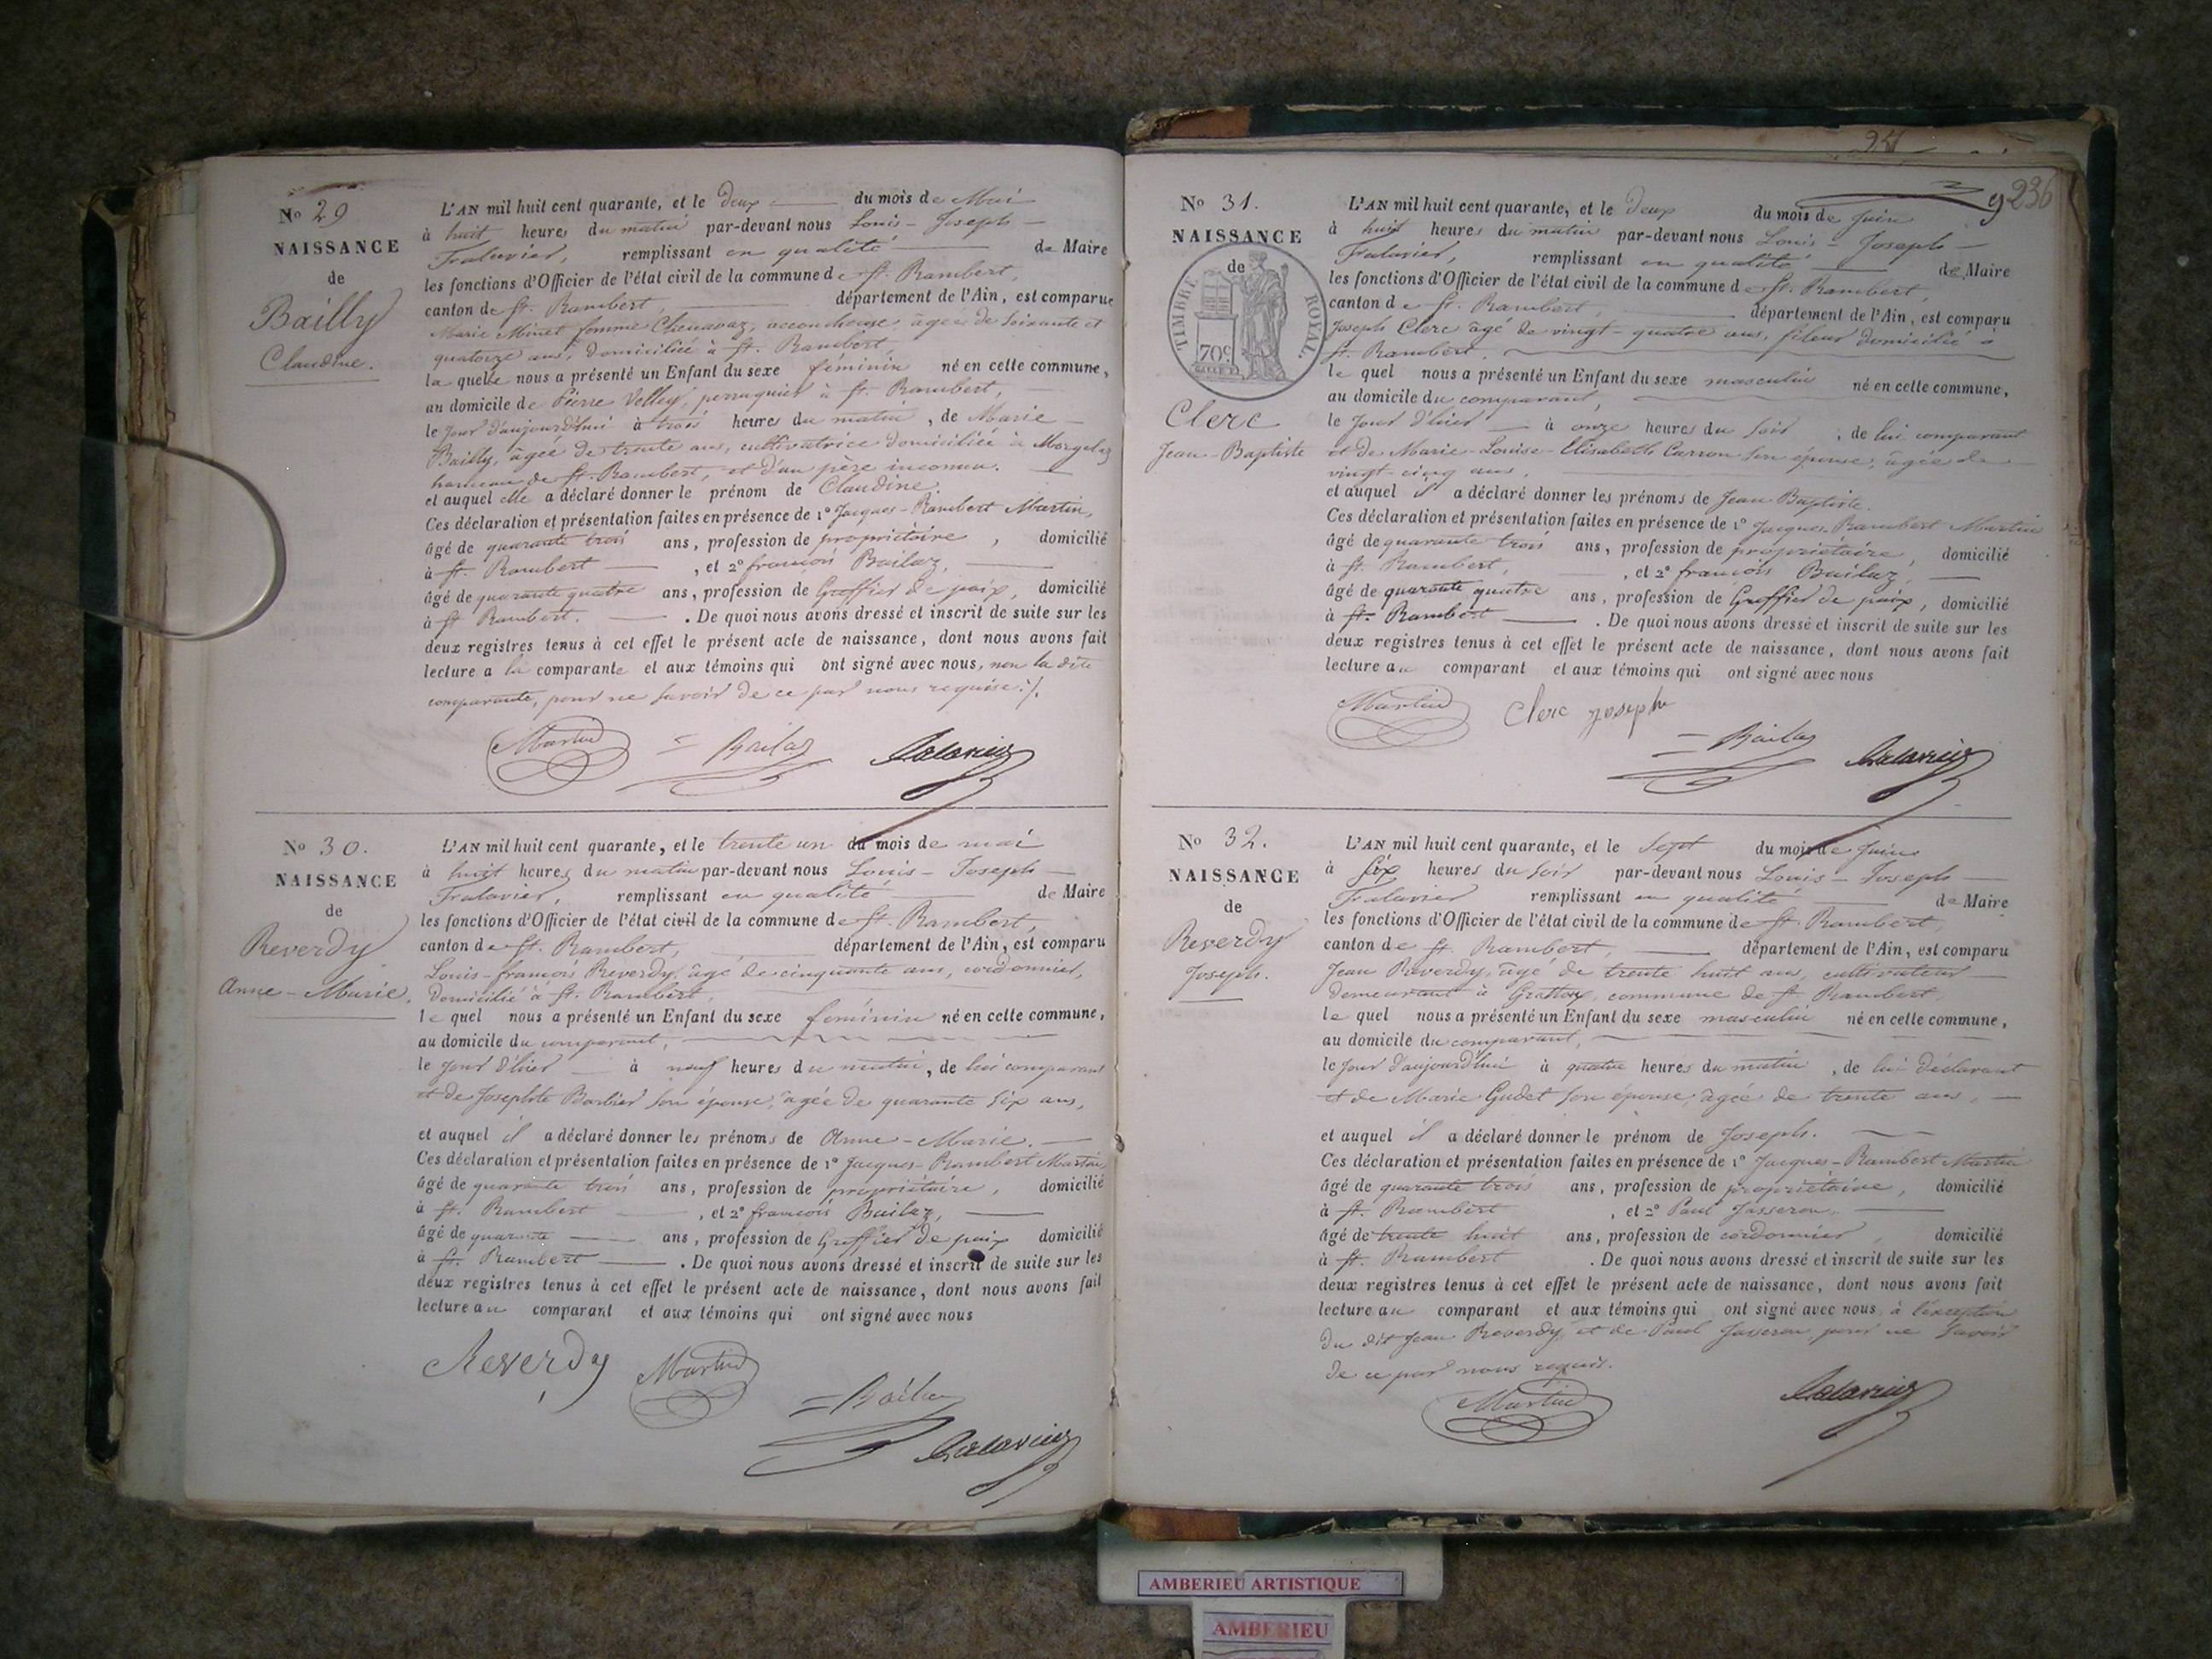 No 29
NAISSANCE
de
Bailly
Claudine.
L'AN mil huit cent quarante, et le Deux du mois de Mai
à huit heures du matin par-devant nous Louis-Joseph
remplissant en qualité de Maire
les fonctions d'Officier de l'état civil de la commune de St. Rambert,
canton de St. Rambert, département de l'Ain, est comparue
Marie Minet femme Chenavaz, accoucheuse, âgée de soixante et
quatorze ans, domiciliée à St. Rambert,
la quelle nous a présenté un Enfant du sexe féminin né en cette commune,
au domicile de Pierre Velley, perruquier à St. Rambert,
le jour d'aujourd'hui à trois heures du matin, de Marie
Bailly, âgée de trente ans, cultivatrice domiciliée à Morgelaz
hameau de St. Rambert, et d'un père inconnu.
et auquel elle a déclaré donner le prénom de Claudine.
Ces déclaration et présentation faites en présence de 1º Jacques-Rambert Martin,
âgé de quarante trois ans, profession de propriétaire, domicilié
à St. Rambert, et 2º françois Bailaz,
âgé de quarante quatre ans, profession de Greffier de paix, domicilié
à St Rambert. . De quoi nous avons dressé et inscrit de suite sur les
deux registres tenus à cet effet le présent acte de naissance, dont nous avons fait
lecture a la comparante et aux témoins qui ont signé avec nous, non la dite
comparante, pour ne savoir de ce par nous requise ./.
Martin Bailaz
No 30.
NAISSANCE
de
Reverdy
Anne-Marie.
L'AN mil huit cent quarante, et le trente un du mois de mai
à huit heures du matin par-devant nous Louis-Joseph
remplissant en qualité de Maire
les fonctions d'Officier de l'état civil de la commune de St. Rambert,
canton de St. Rambert, département de l'Ain, est comparu
Louis-françois Reverdy, âgé de cinquante ans, cordonnier,
domicilié à St. Rambert,
le quel nous a présenté un Enfant du sexe féminin né en cette commune,
au domicile du comparant,
le jour d'hier à neuf heures du matin, de lui comparant
et de Josephte Barbier son épouse, âgée de quarante six ans,
et auquel il a déclaré donner les prénoms de Anne-Marie.
Ces déclaration et présentation faites en présence de 1º Jacques-Rambert Martin
âgé de quarante trois ans, profession de propriétaire, domicilié
à St. Rambert, et 2º françois Bailaz,
âgé de quarante ans, profession de Greffier de paix domicilié
à St. Rambert . De quoi nous avons dressé et inscrit de suite sur les
deux registres tenus à cet effet le présent acte de naissance, dont nous avons fait
lecture au comparant et aux témoins qui ont signé avec nous
Reverdy Martin
Bailaz
94
9 236
No 31.
NAISSANCE
de
TIMBRE ROYAL.
70c
Clerc
Jean-Baptiste
L'AN mil huit cent quarante, et le Deux du mois de Juin
à huit heures du matin par-devant nous Louis-Joseph
remplissant en qualité de Maire
les fonctions d'Officier de l'état civil de la commune de St. Rambert,
canton de St. Rambert, département de l'Ain, est comparu
Joseph Clerc âgé de vingt-quatre ans, fileur domicilié à
St. Rambert,
le quel nous a présenté un Enfant du sexe masculin né en cette commune,
au domicile du comparant,
le jour d'hier à onze heures du soir, de lui comparant
et de Marie-Louise-Elisabeth Carron son épouse, âgée de
vingt-cinq ans,
et auquel il a déclaré donner les prénoms de Jean Baptiste.
Ces déclaration et présentation faites en présence de 1º Jacques-Rambert Martin
âgé de quarante trois ans, profession de propriétaire, domicilié
à St. Rambert, , et 2º françois Bailaz,
âgé de quarante quatre ans, profession de Greffier de paix, domicilié
à St. Rambert . De quoi nous avons dressé et inscrit de suite sur les
deux registres tenus à cet effet le présent acte de naissance, dont nous avons fait
lecture au comparant et aux témoins qui ont signé avec nous
Martin Clerc joseph
Bailaz
No 32.
NAISSANCE
de
Reverdy
Joseph.
L'AN mil huit cent quarante, et le Sept du mois de Juin
à six heures du soir par-devant nous Louis-Joseph
remplissant en qualité de Maire
les fonctions d'Officier de l'état civil de la commune de St. Rambert,
canton de St. Rambert, département de l'Ain, est comparu
Jean Reverdy, âgé de trente huit ans, cultivateur
demeurant à commune de St. Rambert,
le quel nous a présenté un Enfant du sexe masculin né en cette commune,
au domicile du comparant,
le jour d'aujourd'hui à quatre heures du matin, de lui déclarant
et de Marie Gudet son épouse, âgée de trente ans,
et auquel il a déclaré donner le prénom de Joseph.
Ces déclaration et présentation faites en présence de 1º Jacques-Rambert Martin
âgé de quarante trois ans, profession de propriétaire, domicilié
à St. Rambert , et 2º Paul Jasseron,
âgé de trente huit ans, profession de cordonnier, domicilié
à St. Rambert . De quoi nous avons dressé et inscrit de suite sur les
deux registres tenus à cet effet le présent acte de naissance, dont nous avons fait
lecture au comparant et aux témoins qui ont signé avec nous, à l'exception
du dit Jean Reverdy et de Paul Jasseron, pour ne savoir
de ce par nous requis.
Martin
AMBERIEU ARTISTIQUE
AMBERIEU